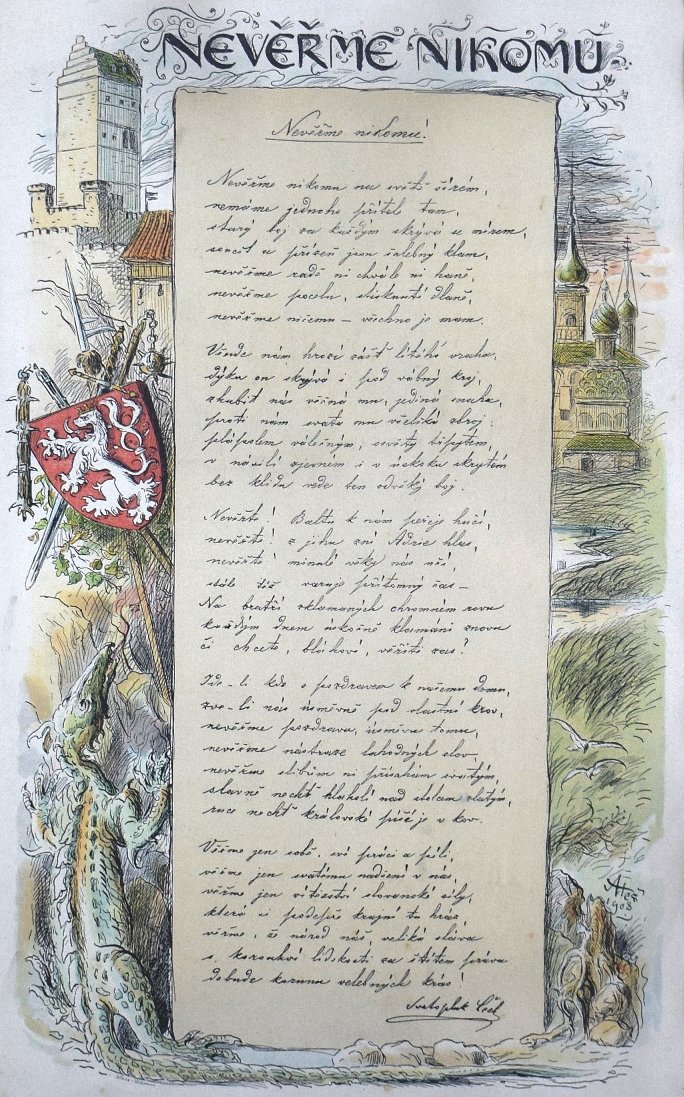 NEVĚŘME NIKOMU.
Nevěřme nikomu!
Nevěřme nikomu na světě širém,
nemáme jednoho přítel tam,
starý boj za každým skrývá se mírem,
soucit a přízeň jsou šalebný klam,
nevěřme radě ni chvále ni haně,
nevěřme pocelu, stisknutí dlaně,
nevěřme ničemu – všechno je mam.
Všude nám hrozí zášť lítého vraha,
dýka on skrývá i pod vábný kroj,
zhubit nás věčná mu, jediná snaha,
proti nám svata mu všeliká zbroj:
plápolem válečným, osvěty třpytem,
v násilí zjevném i v úskoku skrytém
bez klidu vede ten odvěký boj.
Nevěřte! Baltu k nám peřeje hučí,
nevěřte! z jihu zní Adrie hlas,
nevěřte! minulé věky nás učí,
stále též varuje přítomný čas –
Na bratří sklamaných ohromném rovu
každým dnem úskočně klamáni znovu
či chcete, bláhoví, věřiti zas?
Jde-li kdo s pozdravem k našemu domu,
zve-li nás úsměvně pod vlastní krov,
nevěřme pozdravu, úsměvu tomu,
nevěřme nástraze lahodných slov
nevěřme slibům ni přísahám svatým,
slavně nechť hlaholí nad stolcem zlatým,
ruce nechť královská píše je v kov.
Věřme jen sobě, své práci a píli,
věřme jen svatému nadšení v nás,
věřme jen vítězství slovanské síly,
která si podepře krajní tu hráz,
věřme, že národ náš, veliká sláva
s korouhví lidskosti za štítem práva
dobude korunu velebných krás!
Svatopluk Čech
Aleš
1908